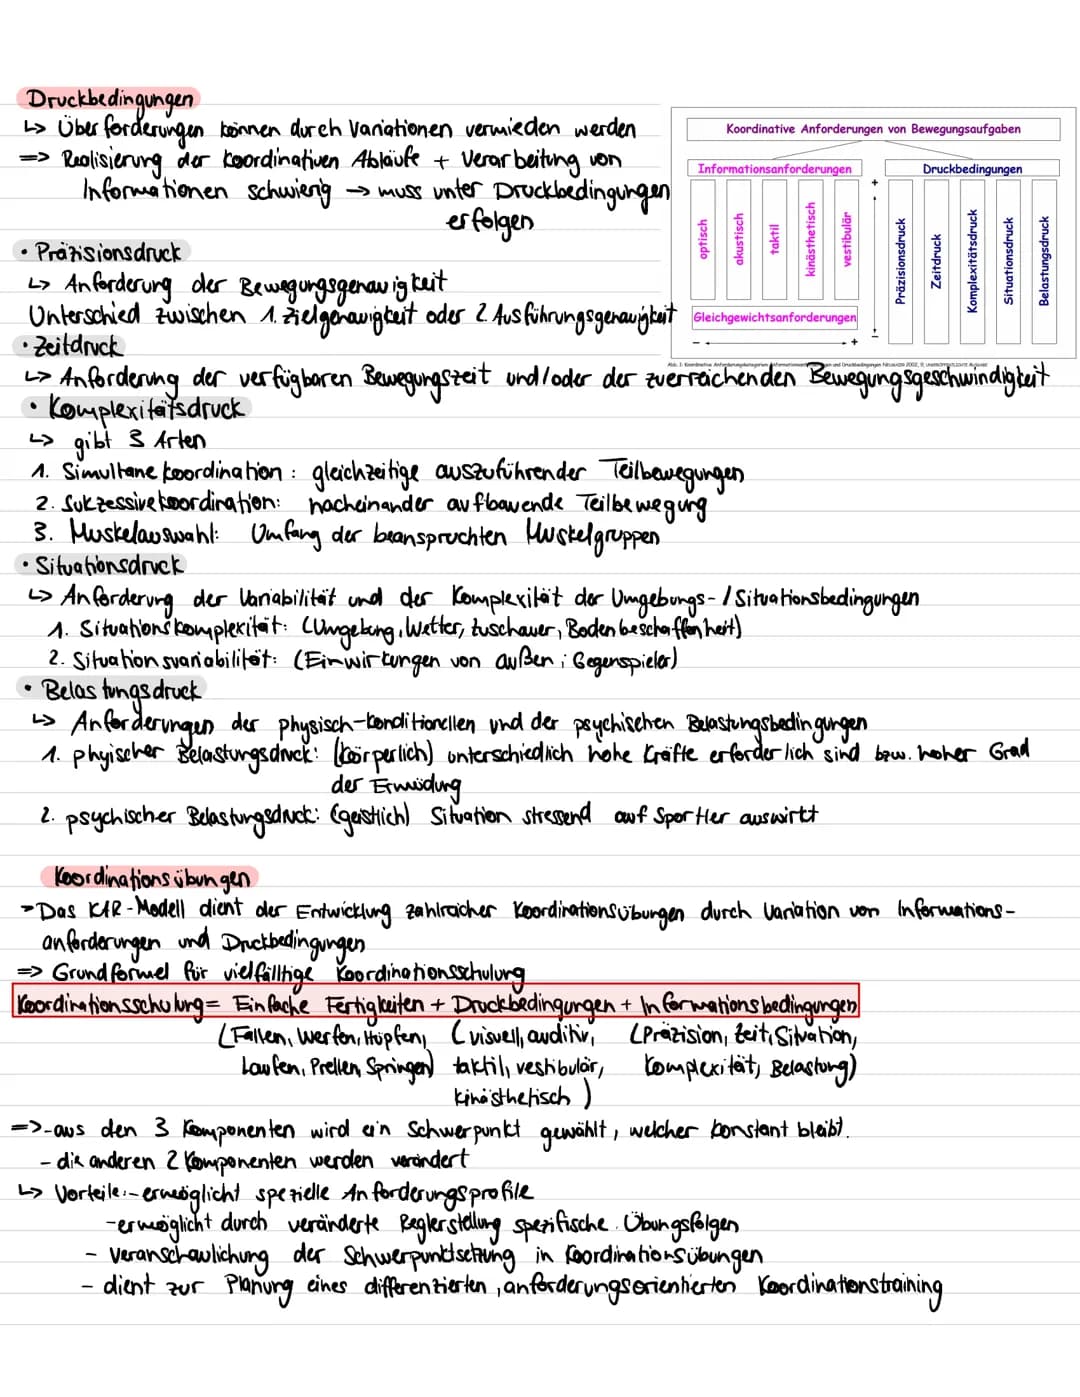 Druckbedingungen
↳ Überforderungen können durch Variationen vermieden werden
=> Realisierung der koordinativen Abläufe + Verarbeitung von
Informationen schwierig → muss unter Druckbedingungen
erfolgen
• Präzisionsdruck
↳ Anforderung der Bewegungsgenauigkeit
Unterschied zwischen 1. Zielgenauigkeit oder 2. Ausführungsgenauigkeit
Koordinative Anforderungen von Bewegungsaufgaben
Informationsanforderungen
Druckbedingungen
optisch
akustisch
taktil
kinästhetisch
vestibulär
+
-
Präzisionsdruck
Zeitdruck
Komplexitätsdruck
Situationsdruck
Belastungsdruck
Gleichgewichtsanforderungen
- +
• Zeitdruck
↳ Anforderung der verfügbaren Bewegungszeit und/oder der zuerreichenden Bewegungsgeschwindigkeit
• Komplexitätsdruck
↳ gibt 3 Arten
1. Simultane koordination: gleichzeitige auszuführender Teilbewegungen
2. Sukzessivekoordination: nacheinander aufbauende Teilbewegung
3. Muskelauswahl: Umfang der beanspruchten Muskelgruppen
• Situationsdruck
↳ Anforderung der Variabilität und der Komplexität der Umgebungs-/Situationsbedingungen
1. Situationskomplexität: (Umgebung, Wetter, Zuschauer, Bodenbeschaffenheit)
2. Situationsvariabilität: (Einwirkungen von außen; Gegenspieler)
• Belastungsdruck
↳ Anforderungen der physisch-konditionellen und der psychischen Belastungsbedingungen
1. phyischer Belastungsdruck: (körperlich) unterschiedlich hohe Kräfte erforderlich sind bzw. hoher Grad
der Ermüdung
2. psychischer Belastungsdruck: (geistlich) Situation stressend auf Sportler auswirkt
Koordinationsübungen
→ Das KAR-Modell dient der Entwicklung zahlreicher Koordinationsübungen durch Variation von Informations-
anforderungen und Druckbedingungen
=> Grundformel für vielfälltige Koordinationsschulung
Koordinationsschulung = Einfache Fertigkeiten + Druckbedingungen + Informationsbedingungen
(Fallen, Werfen, Hüpfen, (visuell, auditiv, (Präzision, Zeit, Situation,
Laufen, Prellen, Springen) taktil, vestibulär, Komplexität, Belastung)
kinästhetisch)
=> - aus den 3 Komponenten wird ein Schwerpunkt gewählt, welcher konstant bleibt.
- die anderen 2 Komponenten werden verändert
↳ Vorteile: - ermöglicht spezielle Anforderungsprofile
- ermöglicht durch veränderte Reglerstellung spezifische Übungsfolgen
- Veranschaulichung der Schwerpunktsetzung in Koordinationsübungen
- dient zur Planung eines differenzierten, anforderungsorientierten Koordinationstraining